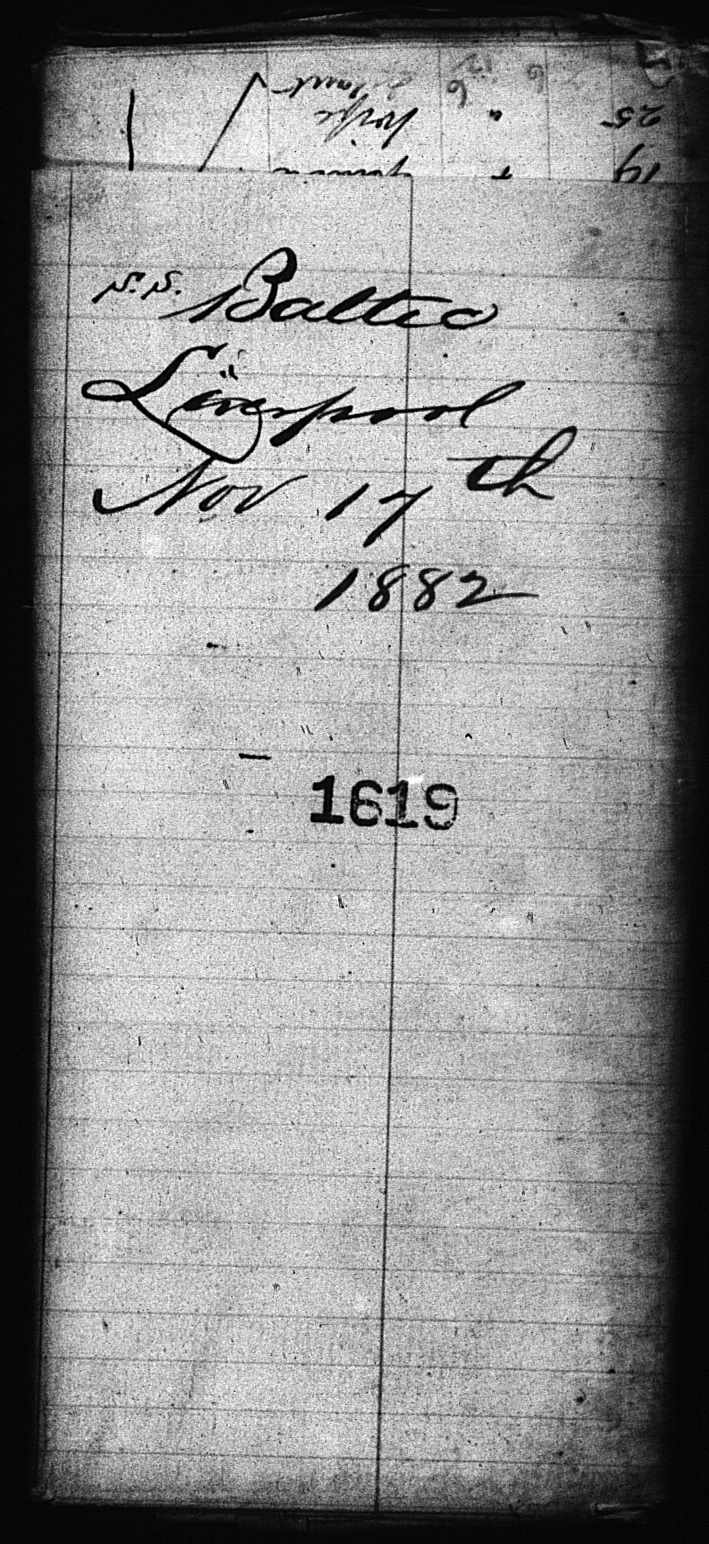 S.S. Baltic
Liverpool
Nov 17th
1882
1619
25 " Wife
19